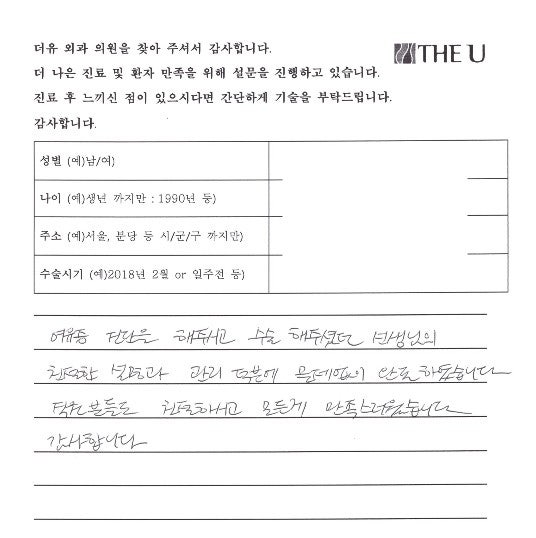 더유 외과 의원을 찾아 주셔서 감사합니다.
THE U
더 나은 진료 및 환자 만족을 위해 설문을 진행하고 있습니다.
진료 후 느끼신 점이 있으시다면 간단하게 기술을 부탁드립니다.
감사합니다.
성별 (예)남/여)
나이 (예)생년 까지만 : 1990년 등)
주소 (예)서울, 분당 등 시/군/구 까지만)
수술시기 (예)2018년 2월 or 일주전 등)
여유증 진단을 해주시고 수술 해주셨던 선생님의
친절한 설명과 관리 덕분에 문제없이 완료하였습니다
직원분들도 친절하시고 모든게 만족스러웠습니다
감사합니다